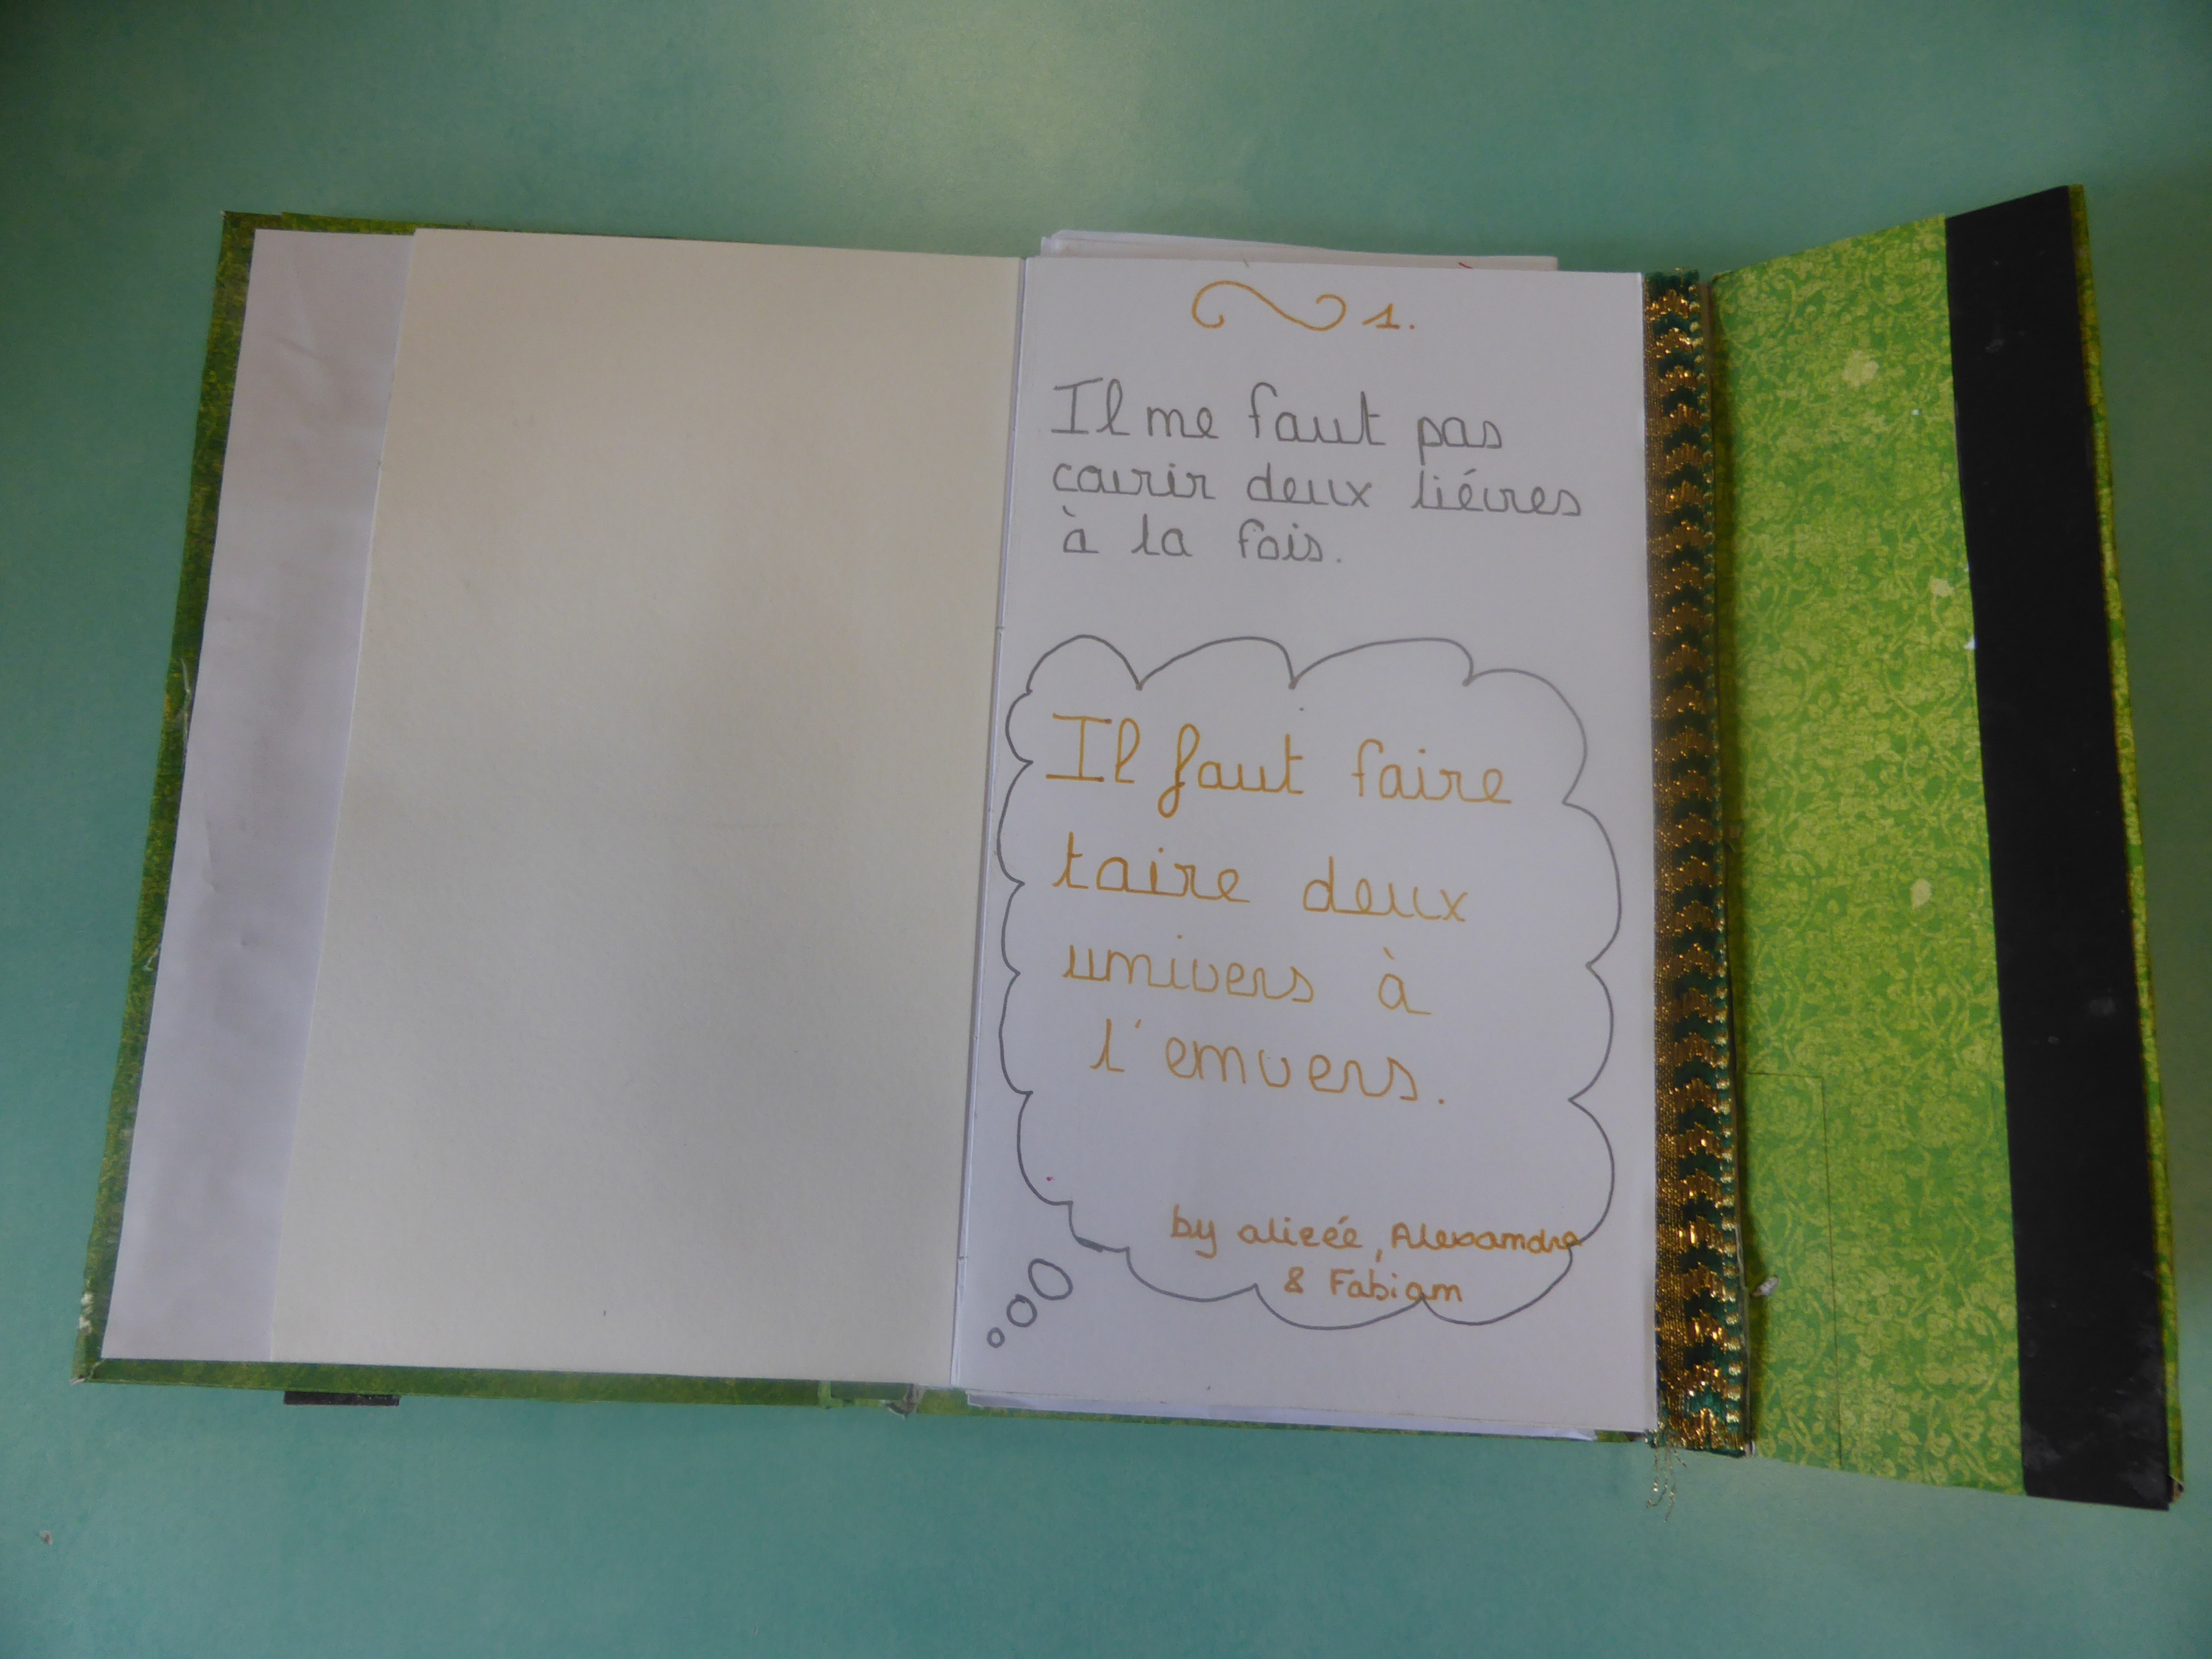 1.
Il ne faut pas
courir deux liévres
à la fois.
Il faut faire
taire deux
univers à
l'envers.
by alizée, Alexandre
& Fabian